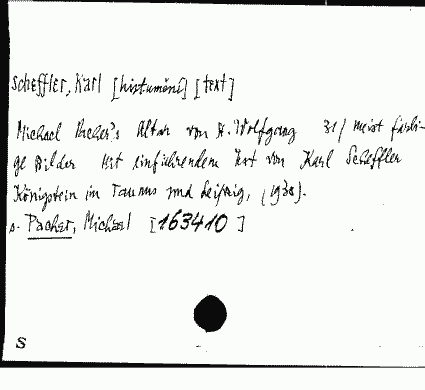 Scheffler, Karl [text]
Michael Pacher's Altar von St. Wolfgang 31/ meist farbi-
ge Bilder Mit einführendem Text von Karl Scheffler
Königstein im Taunus und Leipzig, (1938).
s. Pacher, Michael [163410]
S